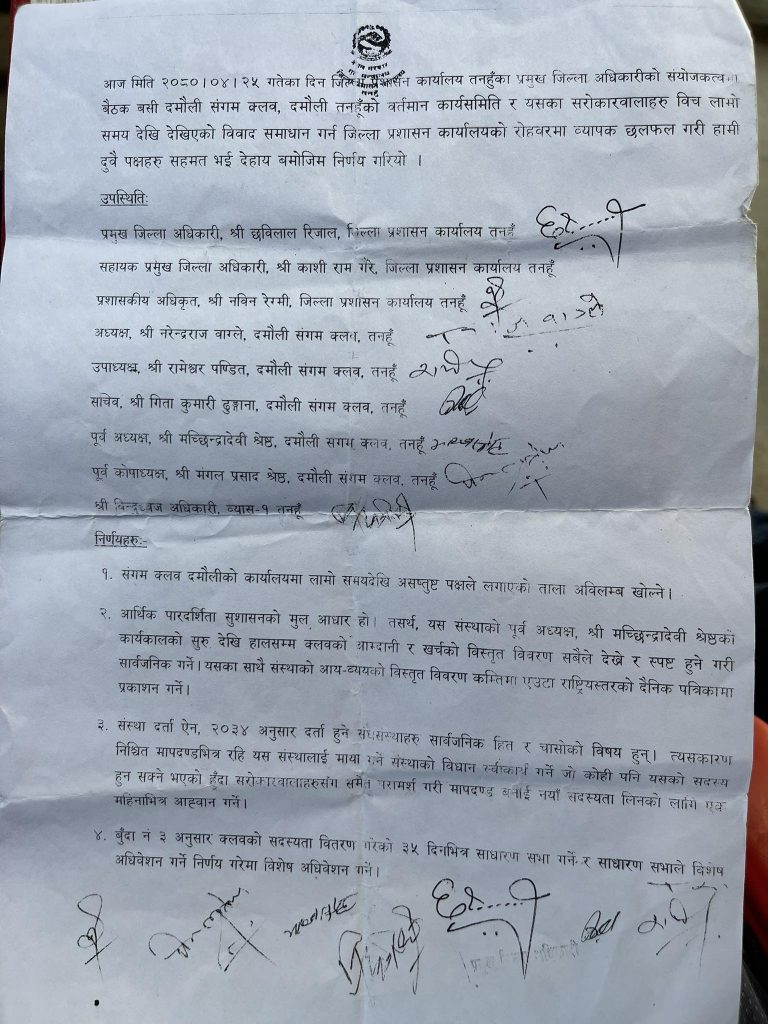 आज मिति २०८०।०४।२५ गतेका दिन जिल्ला प्रशासन कार्यालय तनहुँका प्रमुख जिल्ला अधिकारीको संयोजकत्वमा
बैठक बसी दमौली संगम क्लव, दमौली तनहुँको वर्तमान कार्यसमिति र यसका सरोकारवालाहरु विच लामो
समय देखि देखिएको विवाद समाधान गर्न जिल्ला प्रशासन कार्यालयको रोहवरमा व्यापक छलफल गरी हामी
दुवै पक्षहरु सहमत भई देहाय बमोजिम निर्णय गरियो ।
उपस्थितिः
प्रमुख जिल्ला अधिकारी, श्री छविलाल रिजाल, जिल्ला प्रशासन कार्यालय तनहुँ
सहायक प्रमुख जिल्ला अधिकारी, श्री काशी राम गैरे, जिल्ला प्रशासन कार्यालय तनहूँ
प्रशासकीय अधिकृत, श्री नविन रेग्मी, जिल्ला प्रशासन कार्यालय तनहूँ
अध्यक्ष, श्री नरेन्द्रराज वाग्ले, दमौली संगम क्लव, तनहूँ
उपाध्यक्ष, श्री रामेश्वर पण्डित, दमौली संगम क्लव, तनहूँ
सचिव, श्री गिता कुमारी ढुङ्गाना, दमौली संगम क्लव, तनहूँ
पूर्व अध्यक्ष, श्री मच्छिन्द्रादेवी श्रेष्ठ, दमौली संगम क्लव, तनहूँ
पूर्व कोषाध्यक्ष, श्री मंगल प्रसाद श्रेष्ठ, दमौली संगम क्लव, तनहूँ
श्री विन्दुध्वज अधिकारी, व्यास-१ तनहूँ
निर्णयहरुः-
१. संगम क्लव दमौलीको कार्यालयमा लामो समयदेखि असष्तुष्ट पक्षले लगाएको ताला अविलम्ब खोल्ने।
२. आर्थिक पारदर्शिता सुशासनको मुल आधार हो। तसर्थ, यस संस्थाको पूर्व अध्यक्ष, श्री मच्छिन्द्रादेवी श्रेष्ठको
कार्यकालको सुरु देखि हालसम्म क्लवको आम्दानी र खर्चको विस्तृत विवरण सबैले देख्ने र स्पष्ट हुने गरी
सार्वजनिक गर्ने। यसका साथै संस्थाको आय-व्ययको विस्तृत विवरण कम्तिमा एउटा राष्ट्रियस्तरको दैनिक पत्रिकामा
प्रकाशन गर्ने।
३. संस्था दर्ता ऐन, २०३४ अनुसार दर्ता हुने संघसंस्थाहरु सार्वजनिक हित र चासोको विषय हुन्। त्यसकारण
निश्चित मापदण्डभित्र रहि यस संस्थालाई माया गर्ने संस्थाको विधान स्वीकार्य गर्ने जो कोही पनि यसको सदस्य
हुन सक्ने भएको हुँदा सरोकारवालाहरुसंग समेत परामर्श गरी मापदण्ड बनाई नयाँ सदस्यता लिनको लागि एक
महिनाभित्र आह्वान गर्ने।
४. बुँदा नं ३ अनुसार क्लवको सदस्यता वितरण गरेको ३५ दिनभित्र साधारण सभा गर्ने र साधारण सभाले विशेष
अधिवेशन गर्ने निर्णय गरेमा विशेष अधिवेशन गर्ने।